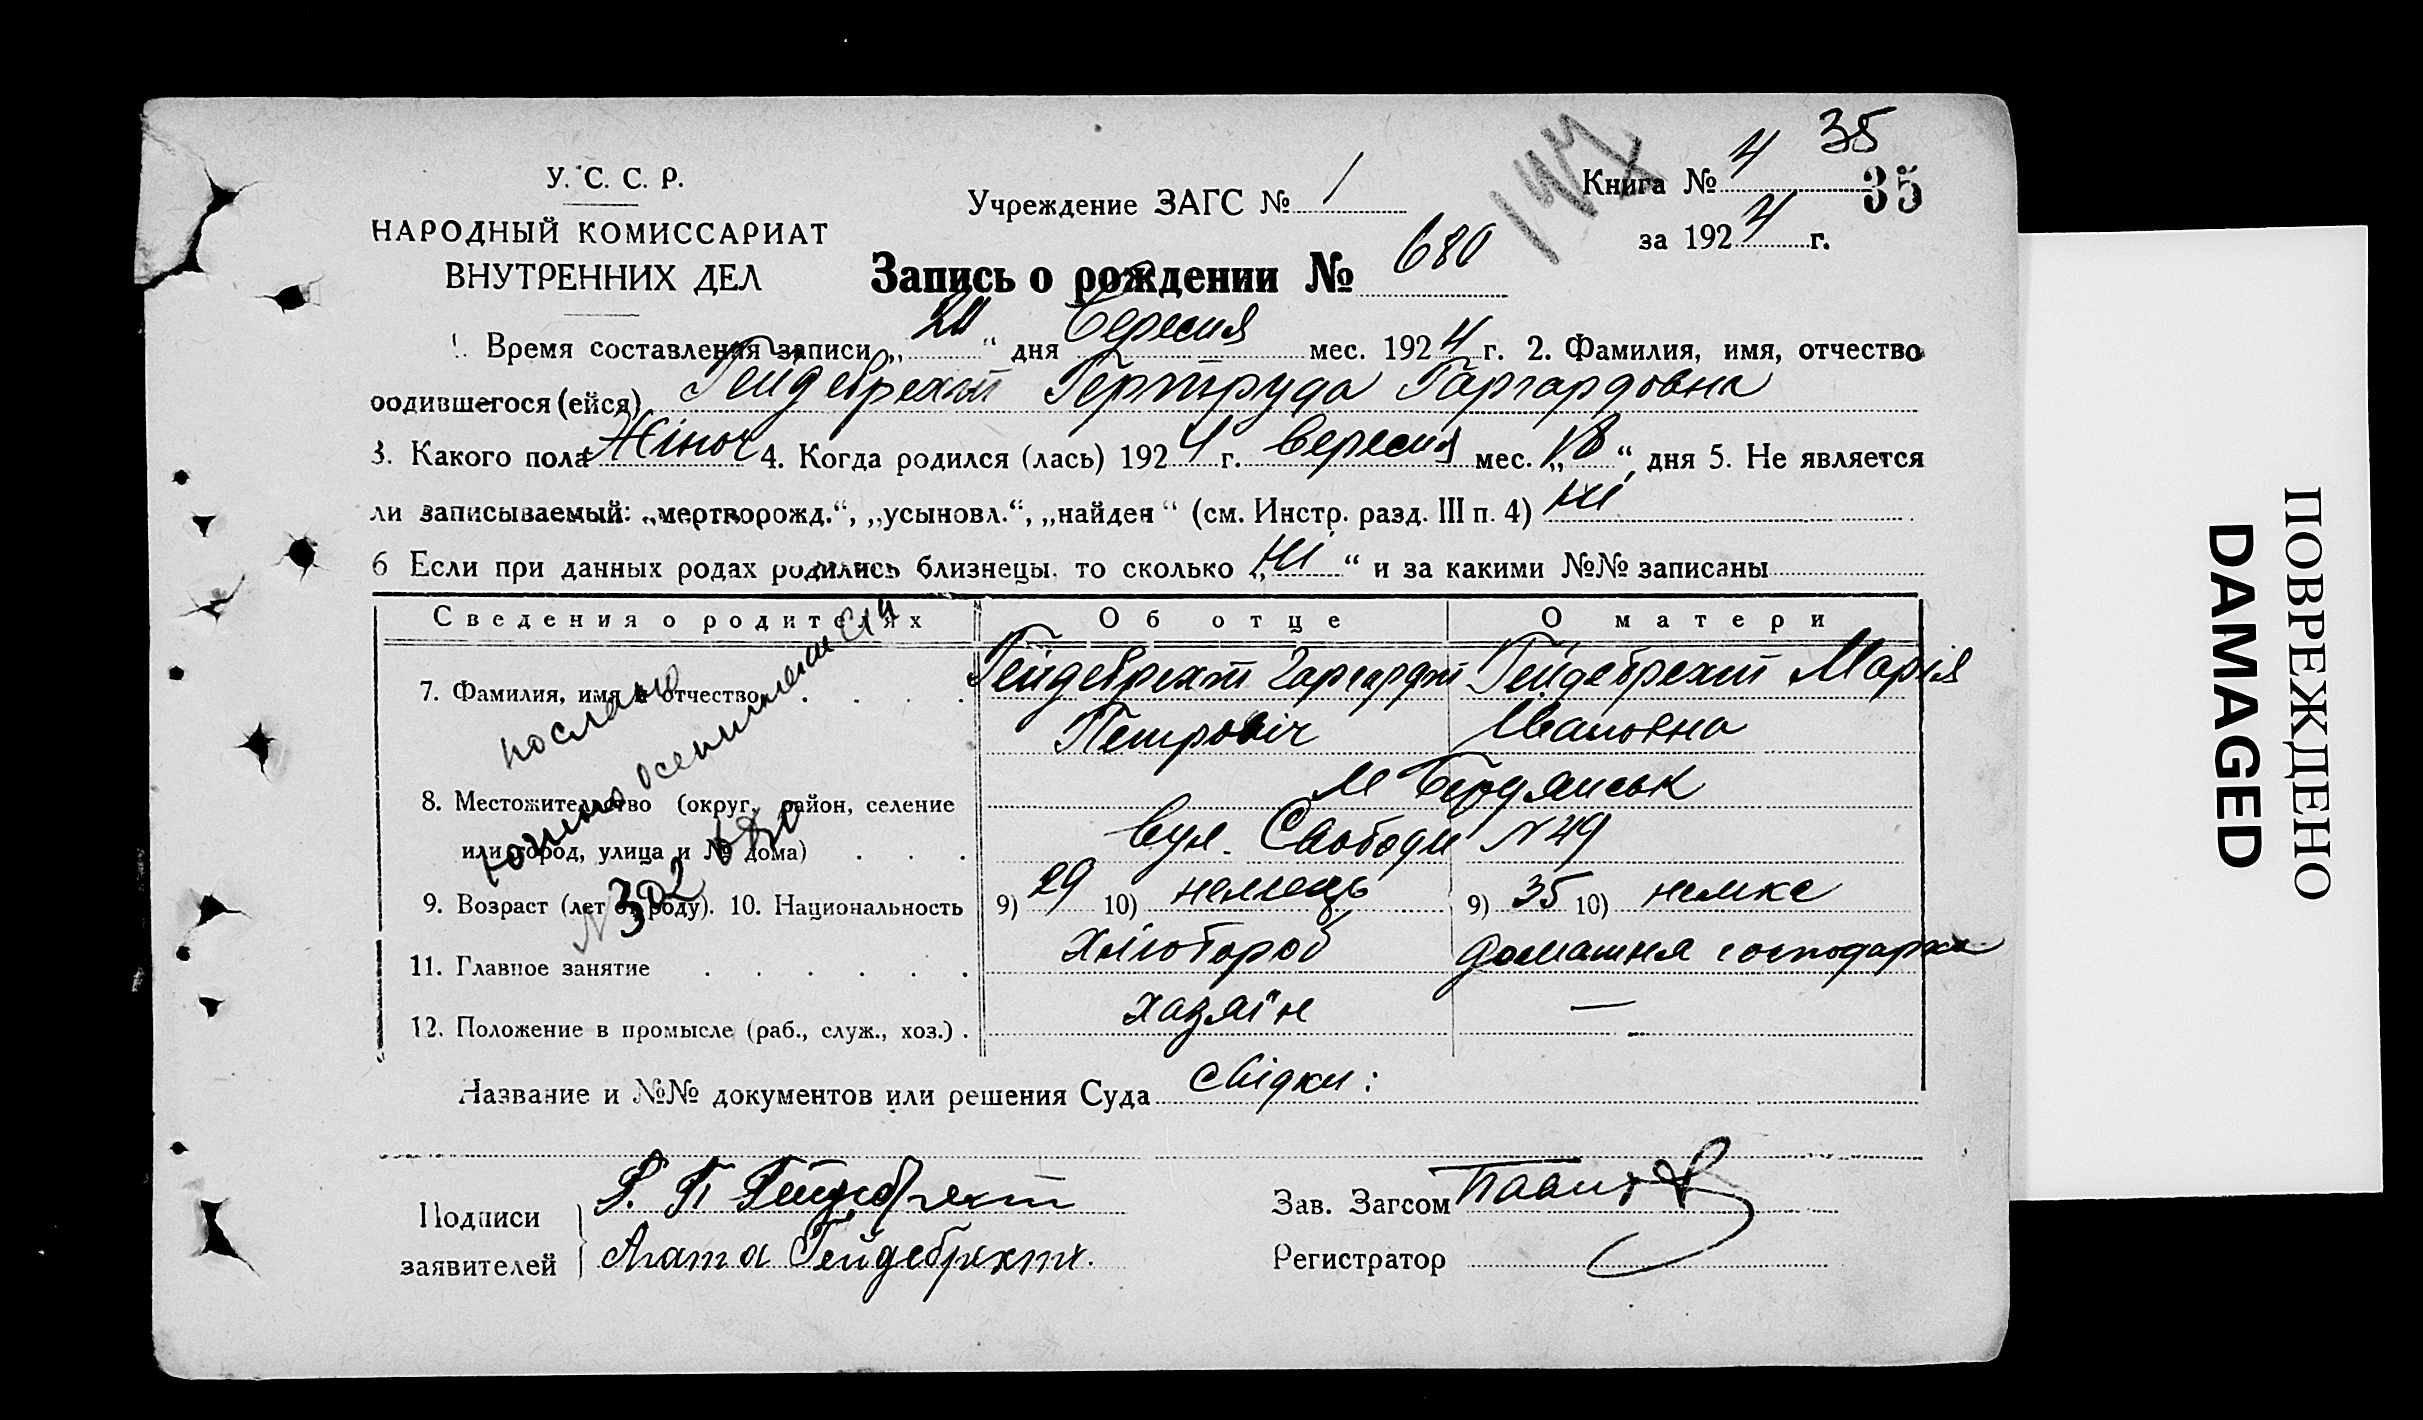 35
У. С. С. Р.
НАРОДНЫЙ КОМИССАРИАТ
ВНУТРЕННИХ ДЕЛ
Учреждение ЗАГС № 1
Книга № 4
35
за 1924 г.
Запись о рождении № 680
1. Время составления записи „20“ дня Вересня мес. 1924 г. 2. Фамилия, имя, отчество
родившегося (ейся) Гейдебрехт Гертруда Гаргардовна
3. Какого пола Жіноч 4. Когда родился (лась) 1924 г. вересня мес. „18“ дня 5. Не является
ли записываемый: „мертворожд.“, „усыновл.“, „найден“ (см. Инстр. разд. III п. 4) ні
6 Если при данных родах родились близнецы, то сколько „ні“ и за какими №№ записаны
Сведения о родителях Об отце О матери
7. Фамилия, имя и отчество Гейдебрехт Гаргардт Гейдебрехт Марія
Петровіч Івановна
8. Местожительство (округ, район, селение м Бердянськ
или город, улица и № дома) вул. Свободи N 49
9. Возраст (лет от роду). 10. Национальность 9) 29 10) немець 9) 35 10) немкє
11. Главное занятие Хлібороб домашня господарка
12. Положение в промысле (раб., служ., хоз.) хазяїн —
послано
N 302
Название и №№ документов или решения Суда свідки:
Подписи
заявителей
Г. П Гейдебрехт
Агата Гейдебрехт.
Зав. Загсом
Регистратор
ПОВРЕЖДЕНО
DAMAGED